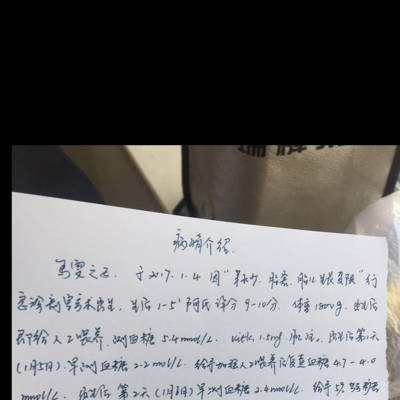 病情介绍
马雯之子 于2017.1.4 因"羊水少、胎窘、胎儿生长受限"行
急诊剖宫产术出生,生后1-5' 阿氏评分9-10分,体重1800g. 出生后
即给人工喂养,测血糖5.4mmol/L. VitK1 1.5mg 肌注。出生后第1天
(1月5日)早测血糖2.2mmol/L. 给予加强人工喂养后复查血糖4.7-4.0
mmol/L. 出生后第2天(1月6日)早测血糖2.4mmol/L. 给予5% 糖